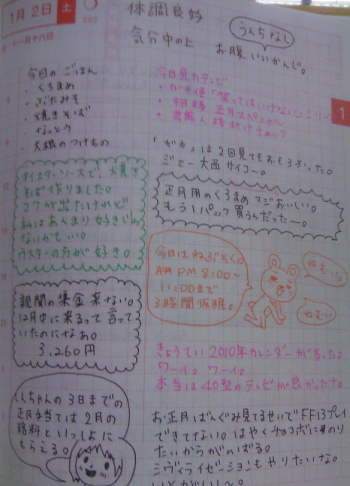 1月2日 土
十一月十八日
体調良好
気分中の上
うんちなし
お腹いいかんじ。
今日のごはん
・くろまめ
・ぶたみそ
・焼きそば
・なっとう
・大根のつけもの
今日見たテレビ
・ガキ使「笑ってはいけない
・相棒 正月スペシャル
・芸能人格付けチェック
「ガキ」は2回見てもおもろすぎった。
ジミー大西サイコー。
オイスターソースで、焼き
そば作りました。
コクが出たけれど
私はあんまり好きじゃ
ないかもしい。
ウスターの方が好き。
正月用のくろまめ マジおいしい。
もう1パック買うんだったー。
今日はねぶそく。
AM PM 8:00〜
11:00まで
3時間仮眠。
ねむい
ねむい
新聞の集金 来ない。
12月中に来るって言って
いたのになぁ。
3,260円
きょうてい2010年カレンダーが当った。
ワーイ。ワーイ。
本当は40型のテレビが良かったナ。
しちゃんの3日までの
正月手当ては2月の
給料といっしょに
もらえる。
お正月ばんぐみ見てるせいでFF13プレイ
できてない。はやくチョコボにのり
たいからがんばる。
シヴィライゼーションもやりたいな。